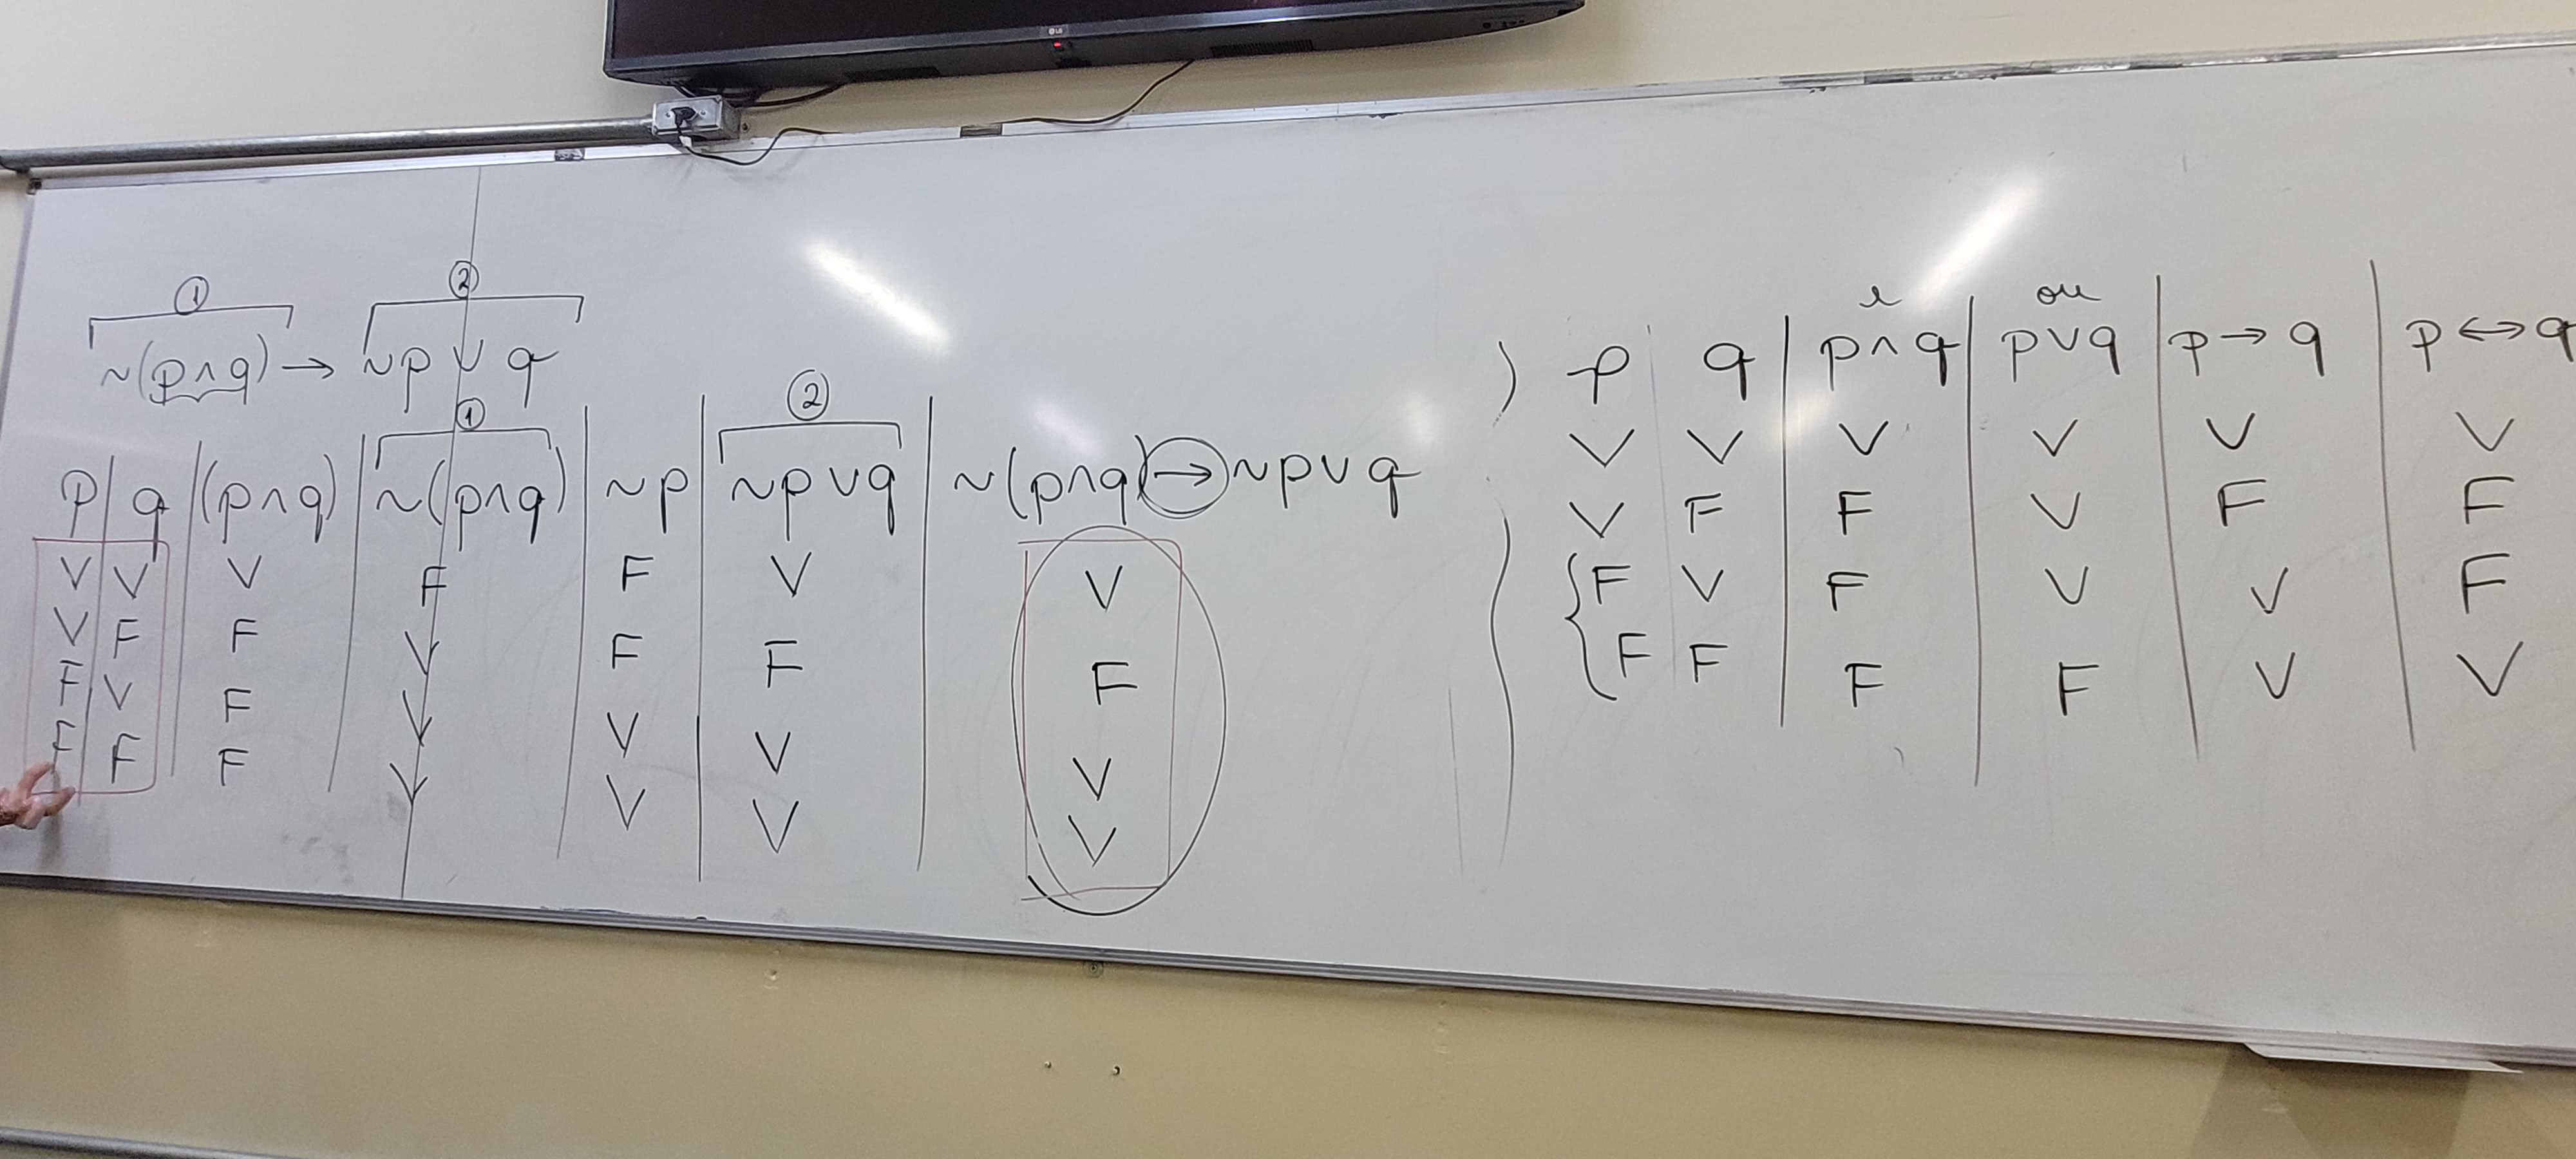 LG
① ②
~(p∧q) → ~p ∨ q
① ②
p | q | (p∧q) | ~(p∧q) | ~p | ~p∨q | ~(p∧q) → ~p∨q
V | V | V | F | F | V | V
V | F | F | V | F | F | F
F | V | F | V | V | V | V
F | F | F | V | V | V | V
e ou
) p | q | p∧q | p∨q | p→q | p↔q
V | V | V | V | V | V
V | F | F | V | F | F
F | V | F | V | V | F
F | F | F | F | V | V